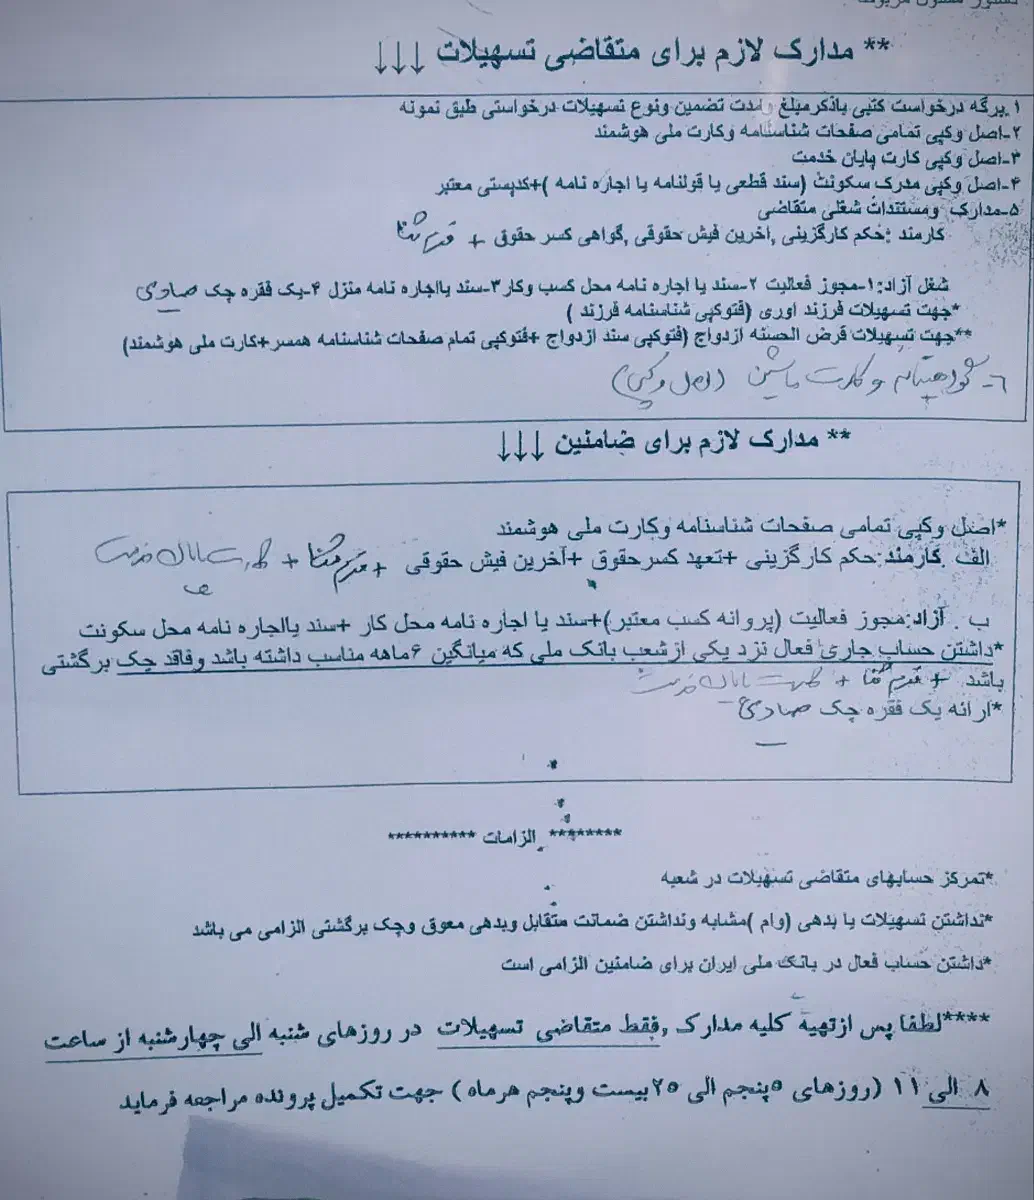 ** مدارک لازم برای متقاضی تسهیلات ↓↓↓
۱.برگه درخواست کتبی باذکرمبلغ ومدت تضمین ونوع تسهیلات درخواستی طبق نمونه
۲-اصل وکپی تمامی صفحات شناسنامه وکارت ملی هوشمند
۳-اصل وکپی کارت پایان خدمت
۴-اصل وکپی مدرک سکونت (سند قطعی یا قولنامه یا اجاره نامه )+کدپستی معتبر
۵-مدارک ومستندات شغلی متقاضی
کارمند :حکم کارگزینی ,آخرین فیش حقوقی ,گواهی کسر حقوق + فرم ثنا
شغل آزاد:۱-مجوز فعالیت ۲-سند یا اجاره نامه محل کسب وکار۳-سند یااجاره نامه منزل ۴-یک فقره چک صیادی
*جهت تسهیلات فرزند اوری (فتوکپی شناسنامه فرزند )
**جهت تسهیلات قرض الحسنه ازدواج (فتوکپی سند ازدواج +فتوکپی تمام صفحات شناسنامه همسر+کارت ملی هوشمند)
۶- گواهینامه و کارت ماشین (اصل و کپی)
** مدارک لازم برای ضامنین ↓↓↓
*اصل وکپی تمامی صفحات شناسنامه وکارت ملی هوشمند
الف .کارمند:حکم کارگزینی +تعهد کسرحقوق +آخرین فیش حقوقی + فرم ثنا + کارت پایان خدمت
ب . آزاد:مجوز فعالیت (پروانه کسب معتبر)+سند یا اجاره نامه محل کار +سند یااجاره نامه محل سکونت
*داشتن حساب جاری فعال نزد یکی ازشعب بانک ملی که میانگین ۶ماهه مناسب داشته باشد وفاقد چک برگشتی
باشد + فرم ثنا + کارت پایان خدمت
*ارائه یک فقره چک صیادی
******** الزامات **********
*تمرکز حسابهای متقاضی تسهیلات در شعبه
*نداشتن تسهیلات یا بدهی (وام )مشابه ونداشتن ضمانت متقابل وبدهی معوق وچک برگشتی الزامی می باشد
*داشتن حساب فعال در بانک ملی ایران برای ضامنین الزامی است
****لطفا پس ازتهیه کلیه مدارک ,فقط متقاضی تسهیلات در روزهای شنبه الی چهارشنبه از ساعت
۸ الی ۱۱ (روزهای ۵پنجم الی ۲۵بیست وپنجم هرماه ) جهت تکمیل پرونده مراجعه فرماید